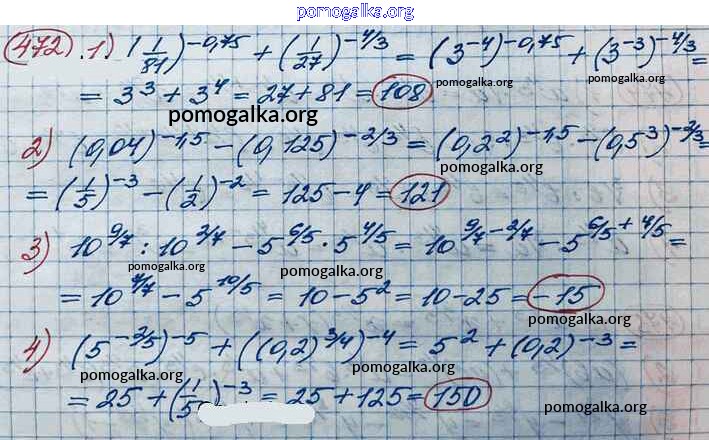 pomogalka.org
472. 1) (1/81)^-0,75 + (1/27)^-4/3 = (3^-4)^-0,75 + (3^-3)^-4/3 =
pomogalka.org pomogalka.org
= 3^3 + 3^4 = 27 + 81 = 108
pomogalka.org
2) (0,04)^-1,5 - (0,125)^-2/3 = (0,2^2)^-1,5 - (0,5^3)^-2/3 =
pomogalka.org
= (1/5)^-3 - (1/2)^-2 = 125 - 4 = 121
3) 10^9/7 : 10^2/7 - 5^6/5 · 5^4/5 = 10^9/7-2/7 - 5^6/5+4/5 =
pomogalka.org pomogalka.org
= 10^7/7 - 5^10/5 = 10 - 5^2 = 10 - 25 = -15
pomogalka.org
4) (5^-2/5)^-5 + ((0,2)^3/4)^-4 = 5^2 + (0,2)^-3 =
pomogalka.org pomogalka.org
= 25 + (1/5)^-3 = 25 + 125 = 150
pomogalka.org